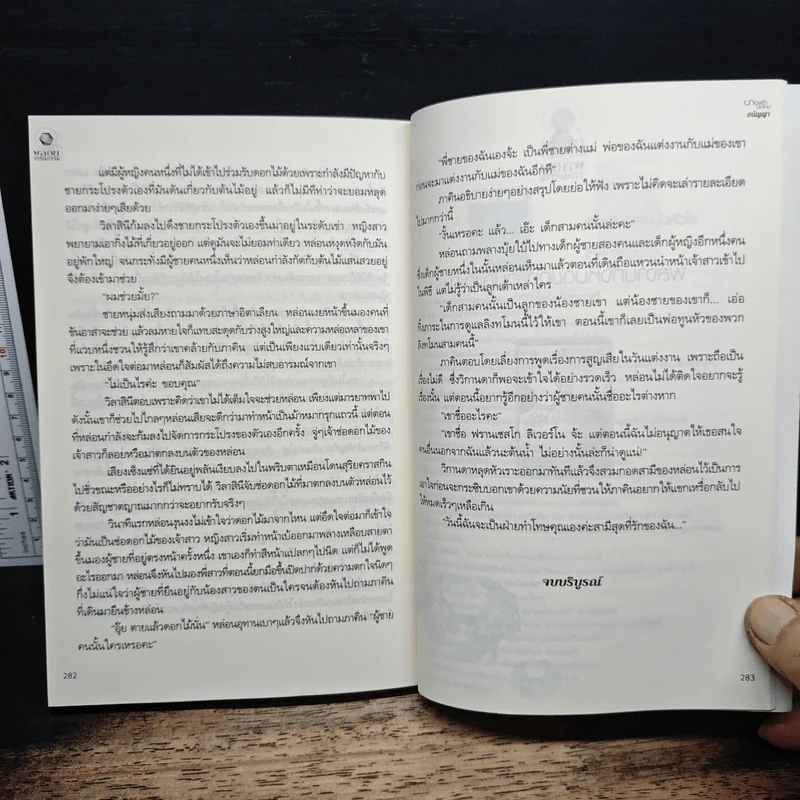 พลอย
วรรณกรรม
แต่มีผู้หญิงคนหนึ่งที่ไม่ได้เข้าไปร่วมรับดอกไม้ด้วยเพราะกำลังมีปัญหากับ
ชายกระโปรงตัวเองที่มันดันเกี่ยวกับต้นไม้อยู่ แล้วก็ไม่มีทีท่าว่าจะยอมหลุด
ออกมาง่ายๆเสียด้วย
วิลาสินีก้มลงไปดึงชายกระโปรงตัวเองขึ้นมาอยู่ในระดับเข่า หญิงสาว
พยายามเอากิ่งไม้ที่เกี่ยวอยู่ออก แต่ดูมันจะไม่ยอมท่าเดียว หล่อนหงุดหงิดกับมัน
อยู่พักใหญ่ จนกระทั่งมีผู้ชายคนหนึ่งเห็นว่าหล่อนกำลังกัดกับต้นไม้แสนสวยอยู่
จึงต้องเข้ามาช่วย
“ผมช่วยมั้ย?”
ชายหนุ่มส่งเสียงถามมาด้วยภาษาอิตาเลียน หล่อนเงยหน้าขึ้นมองคนที่
ขันอาสาจะช่วย แล้วลมหายใจก็แทบสะดุดกับร่างสูงใหญ่และความหล่อเหลาของเขา
ที่แวบหนึ่งชวนให้รู้สึกว่าเขาคล้ายกับภาคิน แต่เป็นเพียงแวบเดียวเท่านั้นจริงๆ
เพราะในอึดใจต่อมาหล่อนก็สัมผัสได้ถึงความไม่สบอารมณ์จากเขา
“ไม่เป็นไรค่ะ ขอบคุณ”
วิลาสินีตอบเพราะคิดว่าเขาไม่ได้เต็มใจจะช่วยหล่อน เพียงแต่มารยาทพาไป
ดังนั้นเขาก็ช่วยไปไกลๆหล่อนเสียจะดีกว่ามาทำหน้าเป็นม้าหมากรุกแถวนี้ แต่ตอน
ที่หล่อนกำลังจะก้มลงไปจัดการกระโปรงของตัวเองอีกครั้ง จู่ๆเจ้าช่อดอกไม้ของ
เจ้าสาวก็ลอยหวือมาตกลงบนตัวของหล่อน
เสียงเซ็งแซ่ที่ได้ยินอยู่พลันเงียบลงไปในพริบตาเหมือนโดนสุริยคราสกิน
ไปชั่วขณะหรืออย่างไรก็ไม่ทราบได้ วิลาสินีจับช่อดอกไม้ที่มาตกลงบนตัวหล่อนไว้
ด้วยสัญชาตญาณมากกว่าจะอยากรับจริงๆ
วินาทีแรกหล่อนงุนงงไม่เข้าใจว่าดอกไม้มาจากไหน แต่อึดใจต่อมาก็เข้าใจ
ว่ามันเป็นช่อดอกไม้ของเจ้าสาว หญิงสาวเริ่มทำหน้าเบ้ออกมาพลางเหลือบสายตา
ขึ้นมองผู้ชายที่อยู่ตรงหน้าครั้งหนึ่ง เขาเองก็ทำสีหน้าแปลกๆไปนิด แต่ก็ไม่ได้พูด
อะไรออกมา หล่อนจึงหันไปมองพี่สาวที่ตอนนี้ยกมือขึ้นปิดปากด้วยความตกใจนิดๆ
กึ่งไม่แน่ใจว่าผู้ชายที่ยืนอยู่กับน้องสาวของตนเป็นใครจนต้องหันไปถามภาคิน
ที่เดินมายืนข้างหล่อน
“อุ๊ย ตายแล้วดอกไม้นั่น” หล่อนอุทานเบาๆแล้วจึงหันไปถามภาคิน “ผู้ชาย
คนนั้นใครเหรอคะ”
282
อนัญญา
“พี่ชายของฉันเองจ้ะ เป็นพี่ชายต่างแม่ พ่อของฉันแต่งงานกับแม่ของเขา
ก่อนจะมาแต่งงานกับแม่ของฉันอีกที”
ภาคินอธิบายง่ายๆอย่างสรุปโดยย่อให้ฟัง เพราะไม่คิดจะเล่ารายละเอียด
ไปมากกว่านี้
“งั้นเหรอคะ แล้ว... เอ๊ะ เด็กสามคนนั้นล่ะคะ”
หล่อนถามพลางบุ้ยใบ้ไปทางเด็กผู้ชายสองคนและเด็กผู้หญิงอีกหนึ่งคน
ซึ่งเด็กผู้ชายหนึ่งในนั้นหล่อนเห็นมาแล้วตอนที่เดินถือแหวนนำหน้าเจ้าสาวเข้าไป
ในพิธี แต่ไม่รู้ว่าเป็นลูกเต้าเหล่าใคร
“เด็กสามคนนั้นเป็นลูกของน้องชายเขา แต่น้องชายของเขาก็... เอ่อ
ทิ้งภาระในการดูแลลิงทโมนนี้ไว้ให้เขา ตอนนี้เขาก็เลยเป็นพ่อทูนหัวของพวก
ลิงทโมนสามคนนี้”
ภาคินตอบโดยเลี่ยงการพูดเรื่องการสูญเสียในวันแต่งงาน เพราะถือเป็น
เรื่องไม่ดี ซึ่งวิกานดาก็พอจะเข้าใจได้อย่างรวดเร็ว หล่อนไม่ได้ติดใจอยากจะรู้
เรื่องนั้น แต่ตอนนี้อยากรู้อีกอย่างว่าผู้ชายคนนั้นชื่ออะไรต่างหาก
“เขาชื่ออะไรคะ”
“เขาชื่อ ฟรานเซสโก ลิเวอร์โน จ้ะ แต่ตอนนี้ฉันไม่อนุญาตให้เธอสนใจ
คนอื่นนอกจากฉันแล้วนะต้นน้ำ ไม่อย่างนั้นล่ะก็น่าดูแน่!”
วิกานดาหลุดหัวเราะออกมาทันทีแล้วจึงสวมกอดสามีของหล่อนไว้เป็นการ
เอาใจก่อนจะกระซิบบอกเขาด้วยความนัยที่ชวนให้ภาคินอยากให้แขกเหรื่อกลับไป
ให้หมดเร็วๆเหลือเกิน
“วันนี้ฉันจะเป็นฝ่ายทำโทษคุณเองค่ะสามีสุดที่รักของฉัน...”
จบบริบูรณ์
283